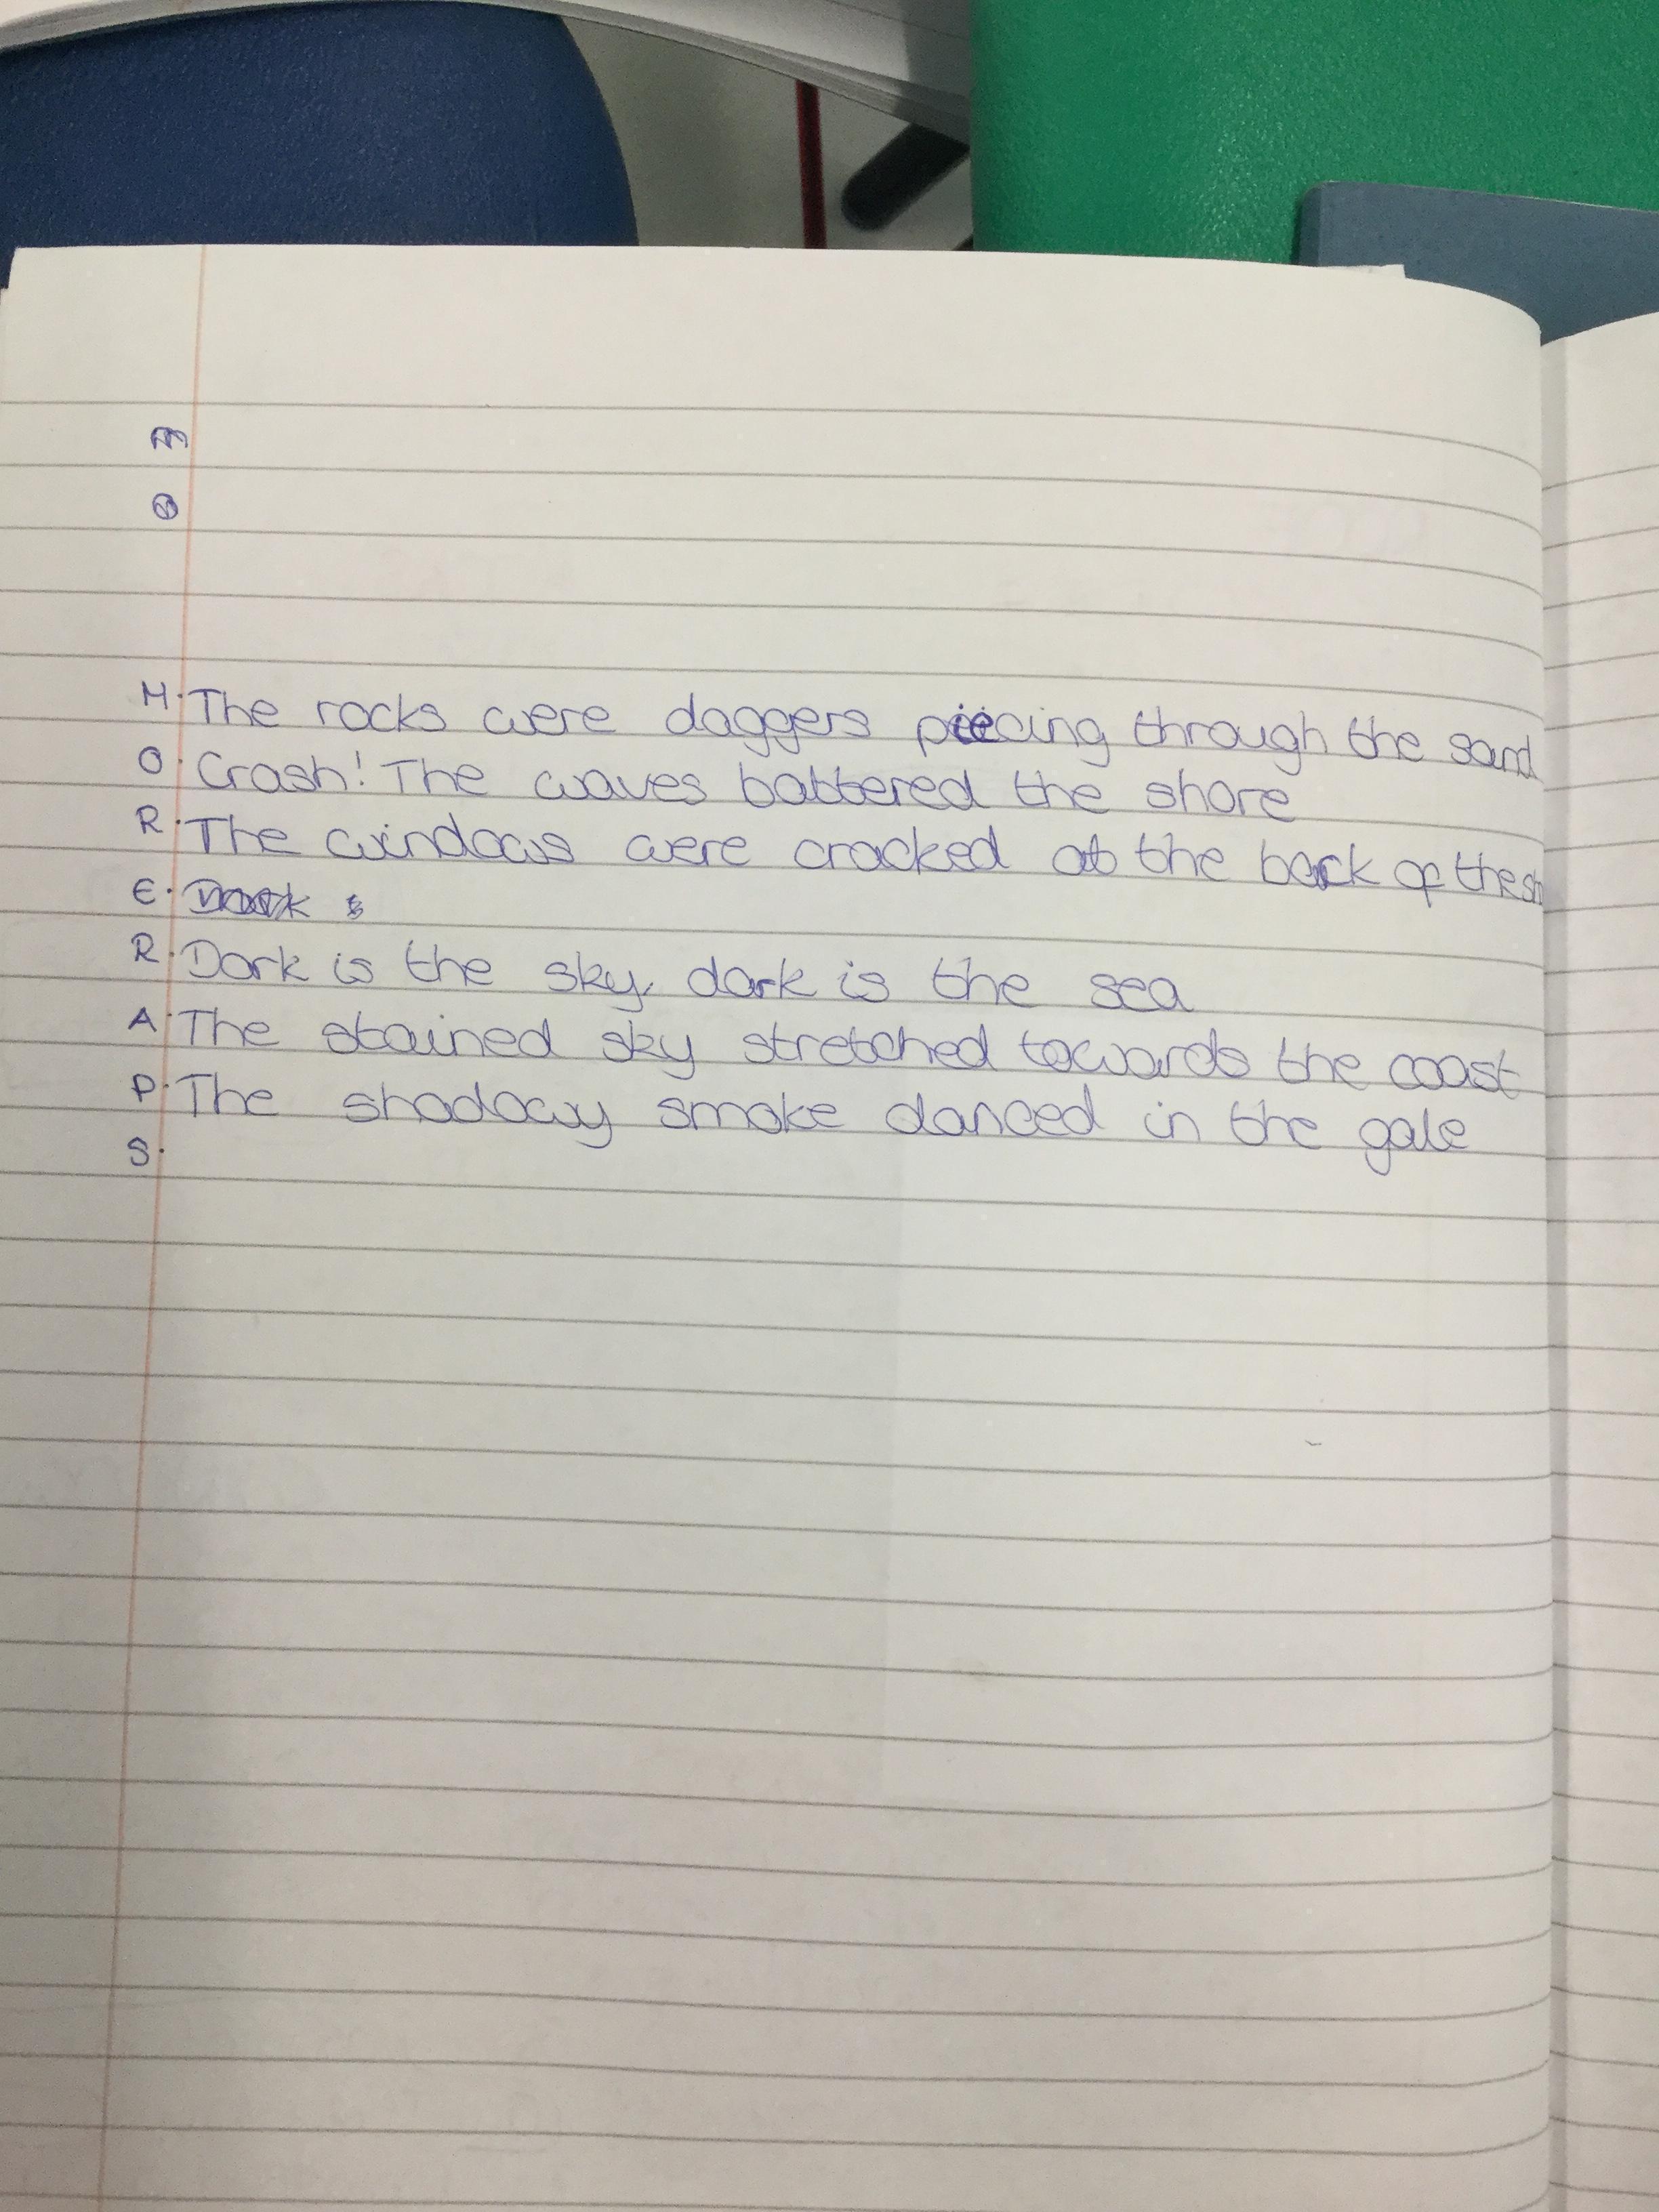 M. The rocks were daggers piecing through the sand
O. Crash! The waves battered the shore
R. The windows were cracked at the back of the sh
E.
R. Dark is the sky, dark is the sea
A. The stained sky stretched towards the coast
P. The shadowy smoke danced in the gale
S.